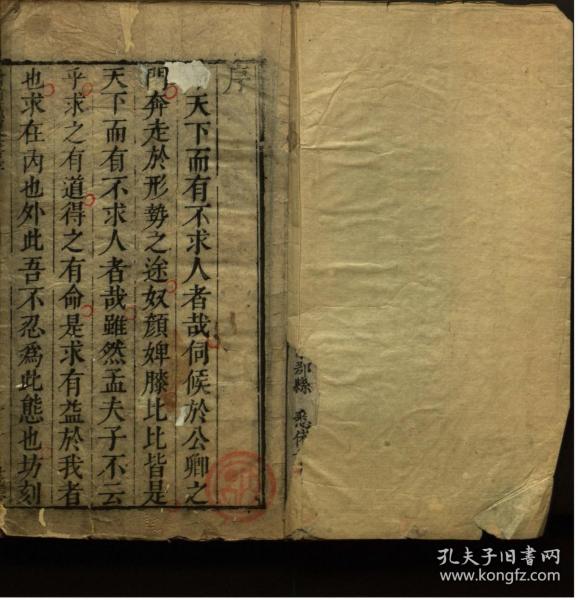 序
天下而有不求人者哉伺候於公卿之
門奔走於形勢之途奴顔婢膝比比皆是
天下而有不求人者哉雖然孟夫子不云
乎求之有道得之有命是求有益於我者
也求在內也外此吾不忍爲此態也坊刻
郡縣
孔夫子旧书网
www.kongfz.com